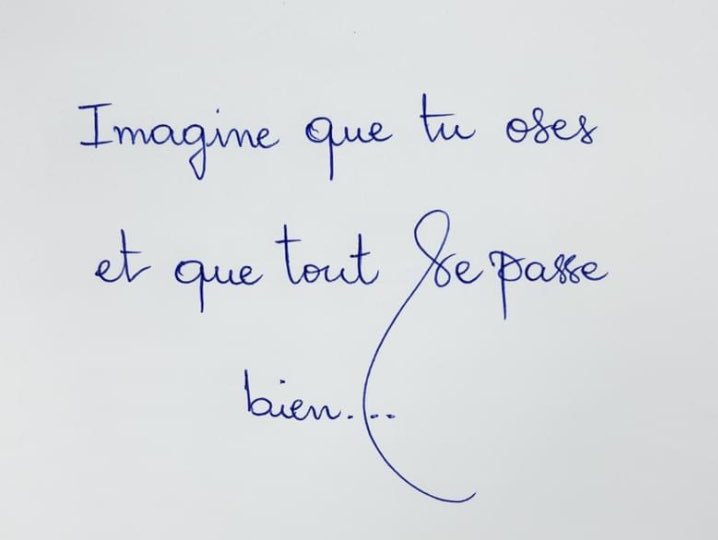 Imagine que tu oses
et que tout se passe
bien...